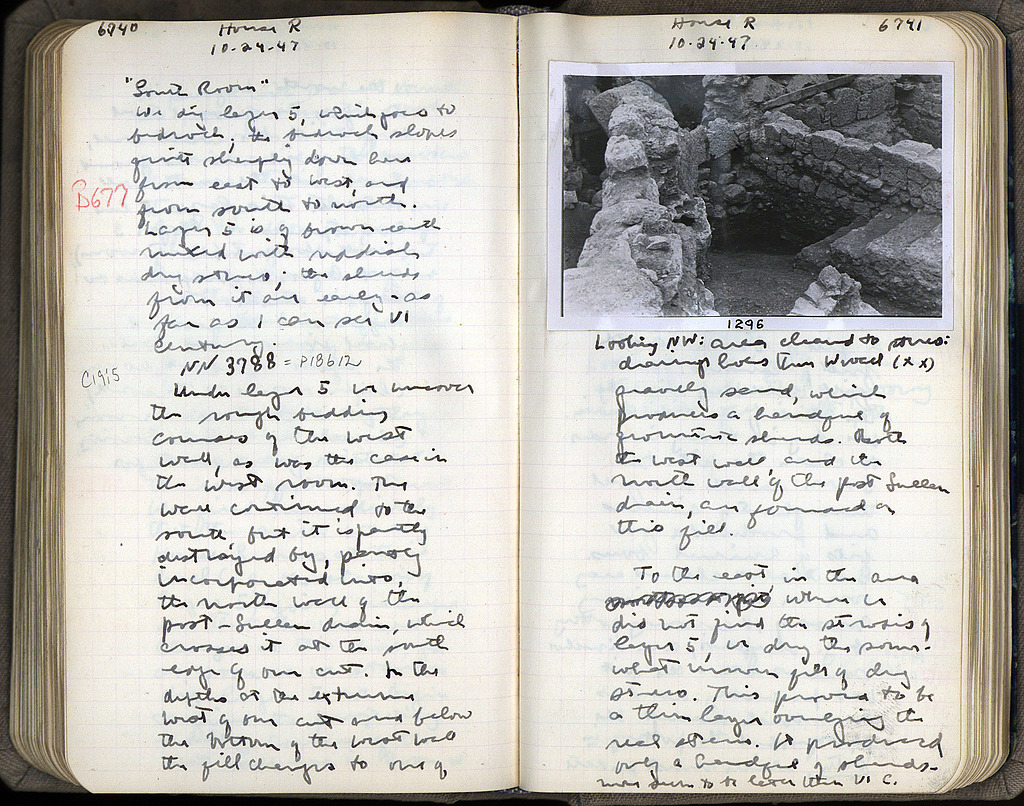 6740 House R
10-24-47
"South Room"
We dig layer 5, which goes to
bedrock; the bedrock slopes
quite sharply down here
from east to west, and
B677
from south to north.
Layer 5 is of brown earth
mixed with reddish
dry stereo; the sherds
from it are early - as
far as I can see VI
century.
NN 3788 = P18612
C1915
Under layer 5 we uncover
the rough bedding
courses of the west
wall, as was the case in
the west room. The
wall continued to the
south but it is partly
destroyed by, partly
incorporated into,
the north wall of the
post-Sullan drain, which
crosses it at the south
edge of our cut. In the
depths at the extreme
west of our cut and below
the bottom of the west wall
the fill changes to one of
House R 6741
10-24-47
1296
Looking NW: area cleared to stereo:
drainage lines thru W wall (x x)
gravelly sand, which
produces a handful of
geometric sherds. Both
the west wall, and the
north wall of the post Sullan
drain, are founded on
this fill.
To the east, in the area
where we
did not find the strosis of
layer 5, we dug the some-
what uneven fill of dry
stereo. This proved to be
a thin layer overlying the
real stereo. It produced
only a handful of sherds -
none seem to be later than VI C.